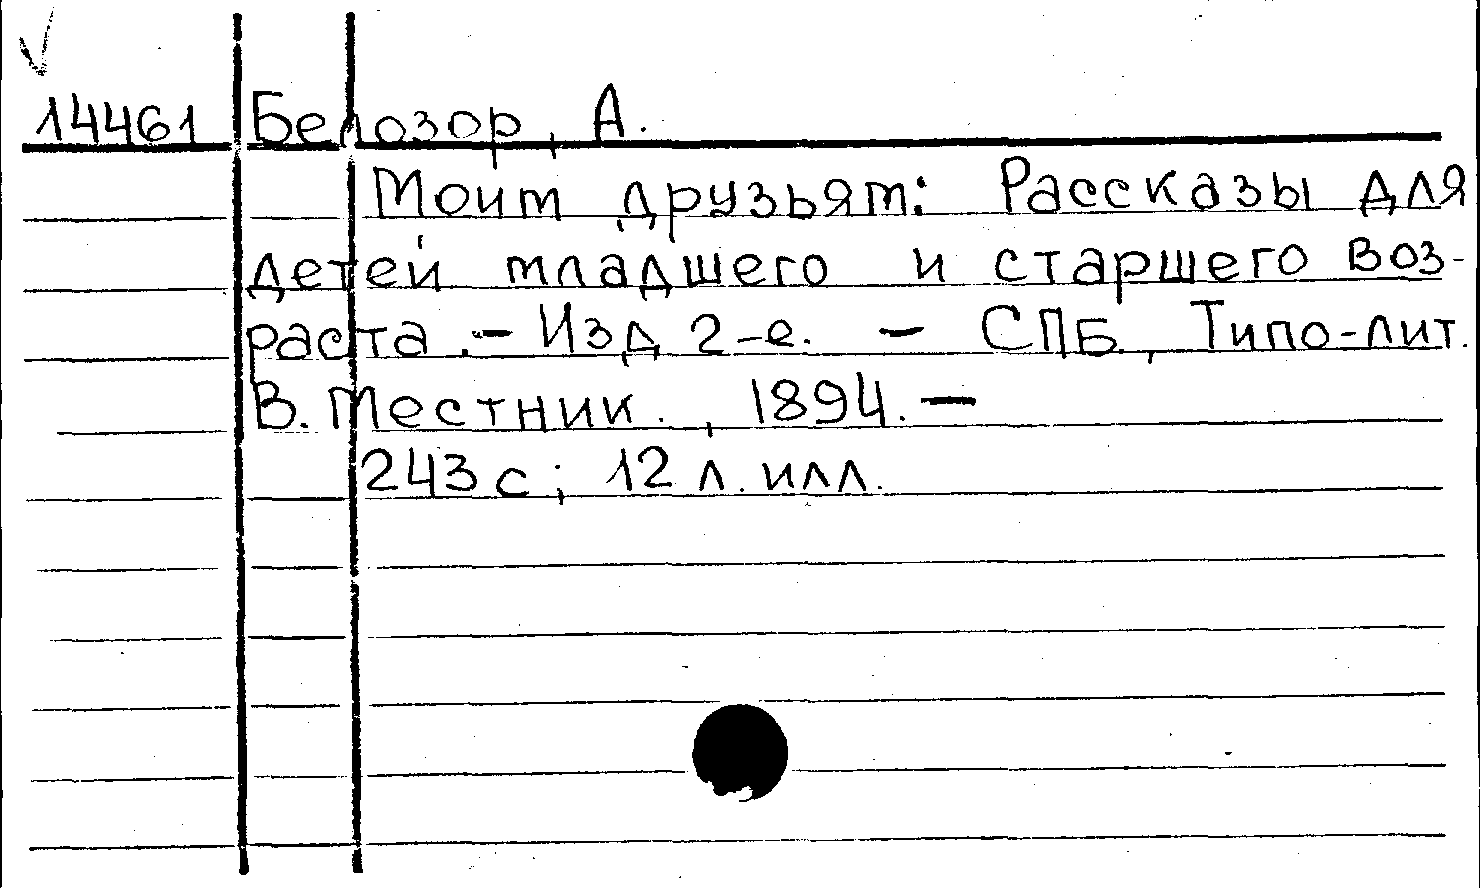 14461 Белозор, А.
Моим друзьям: Рассказы для
детей младшего и старшего воз-
раста. - Изд 2-е. - СПБ., Типо-лит.
В. Местник., 1894. -
243 с; 12 л. илл.